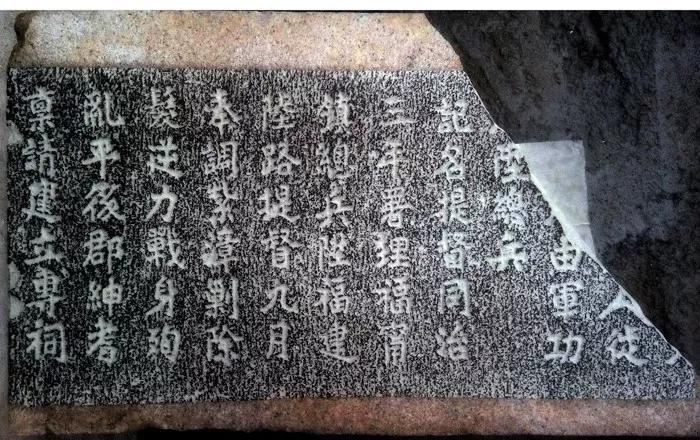 人
由軍功
陞總兵
記名提督同治
三年署理福甯
鎮總兵陞福建
陸路提督九月
奉調紮漳剿除
髮逆力戰身殉
亂平後郡紳耆
禀請建立專祠